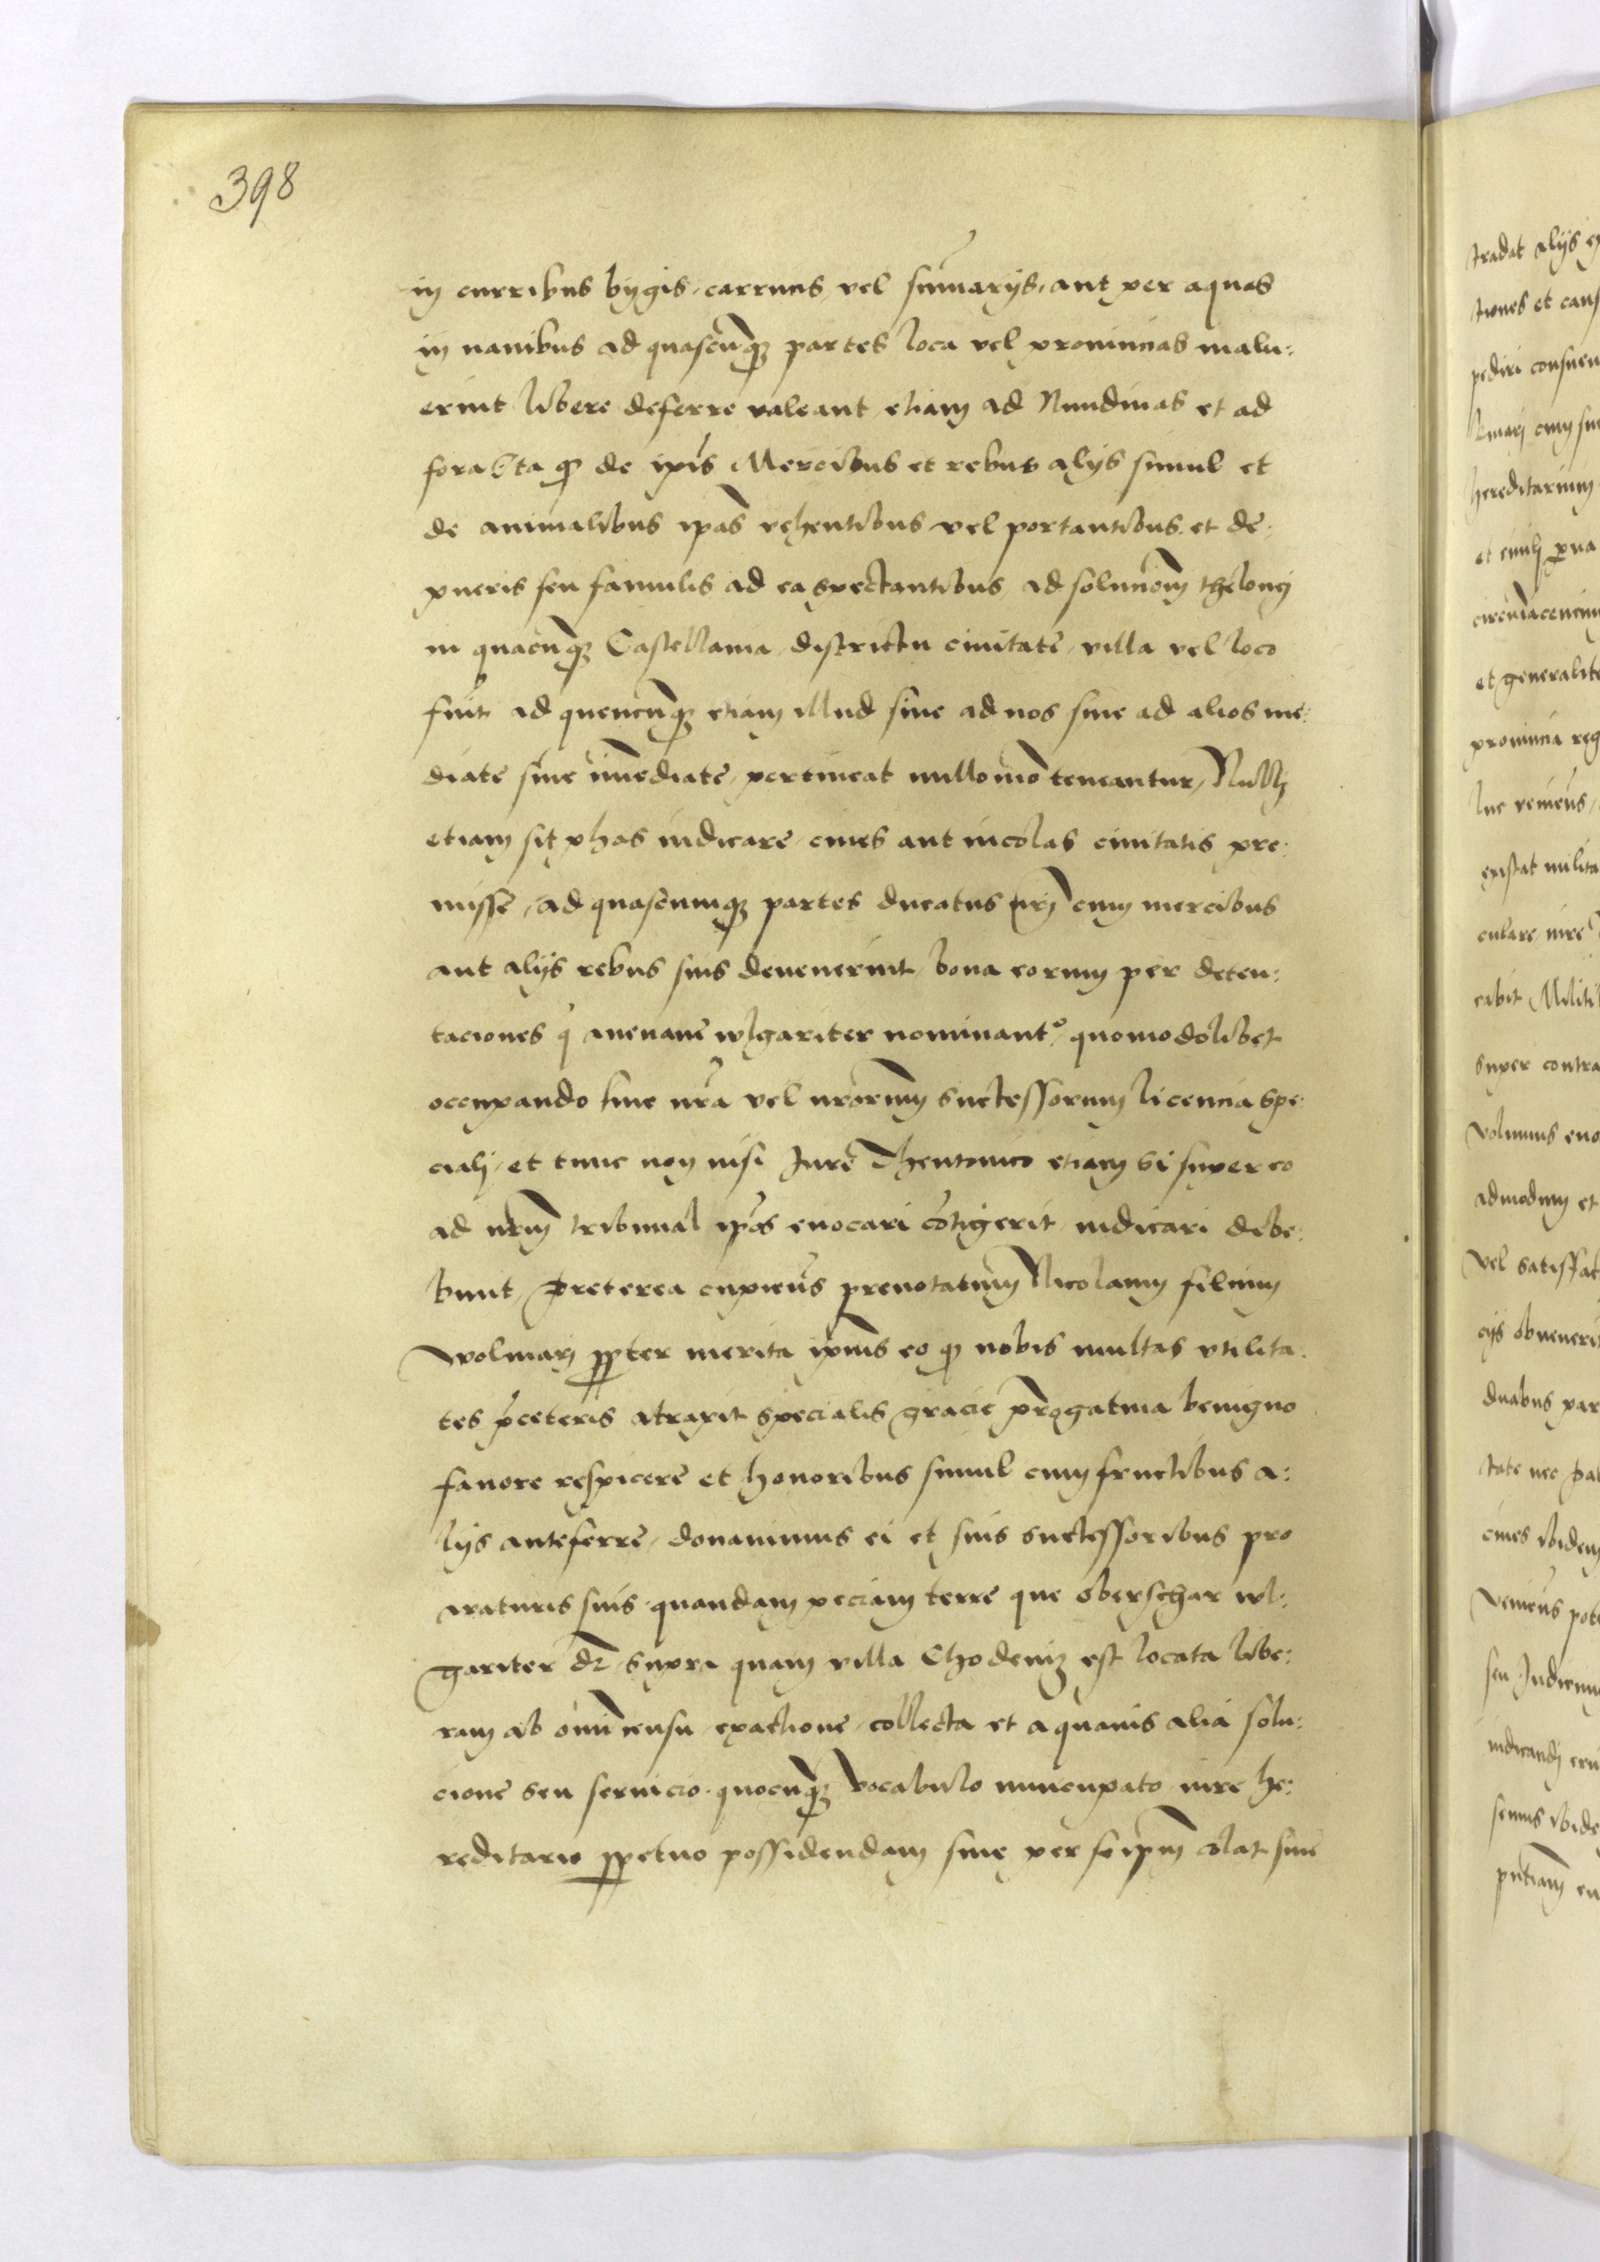 398
in curribus bygis, carrucis vel sum̄arijs, aut per aquas
in nauibus ad quascūq; partes loca vel prouincias malu:
erint libere deferre valeant etiam ad Nundinas et ad
fora Ita q̄ de ip̄is Mercibus et rebus alijs simul et
de animalibus ip̄as vehentibus vel portantibus et de
pueris seu famulis ad ea spectantibus, ad soluc̄iom̄ theloney
in quacūq; Castellania, districtu ciuitate, villa vel loco
fuīt ad quencūq; etiam illud siue ad nos siue ad alios me:
diate siue im̄ediate, pertineat nullomō teneantur, Nulli
etiam sit phas iudicare, ciues aut incolas ciuitatis pre:
misse, ad quascumq; partes ducatus nr̄j cum mercibus
aut alijs rebus suis deuenerint, bona eorum per deten:
taciones q̄ auenane wlgariter nominantʳ quomodolibet
occupando siue nr̄a vel nr̄orum successorum licencia spe:
ciali, et tunc non nisi Jure Theutonico etiam si super eo
ad nr̄m tribunal ip̄os euocari cōtigerit, iudicari debe:
bunt, Preterea cupiēus prenotatum Nicolaum filium
wolmarj ꝓpter merita ip̄ius eo q̄ nobis multas vtilita:
tes p̄ ceteris atraxit specialis gracie p̄rogatiua benigno
fauore respicere et honoribus simul cum fructibus a:
lijs anteferre, donauimus ei et suis successoribus pro
araturis suis quandam peciam terre que oberschar wl:
gariter dr̄ supra quam villa Chodeniz est locata libe:
ram ab om̄i censu, exactione, collecta et a quauis alia solu:
cione seu seruicio quocūq; vocabulo nuncupato iure he:
reditario ꝑpetuo possidendam siue per seip̄m colat siue
tradat alijs
et caus
pediri consueu
cum
hereditarium
et
et generalite
prouincia reg
existat milita
culare iure
cabit Militi
super contra
volumus euo
admodum et
vel satisfac
obuenerit
duabus par
tate nec
ciues ibidem
seu Judicium
iudicandj